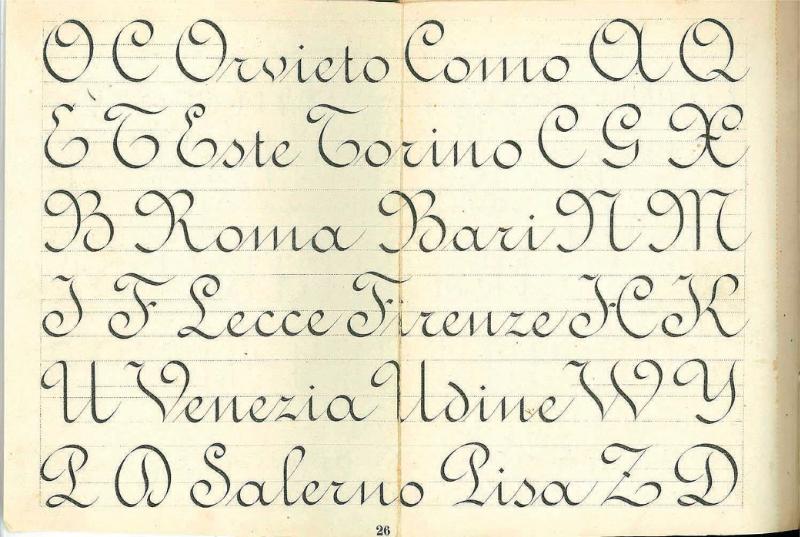 O C Orvieto Como A Q
E T Este Torino C G X
B Roma Bari N M
I F Lecce Firenze H K
U Venezia Udine W Y
P D Salerno Pisa Z D
26